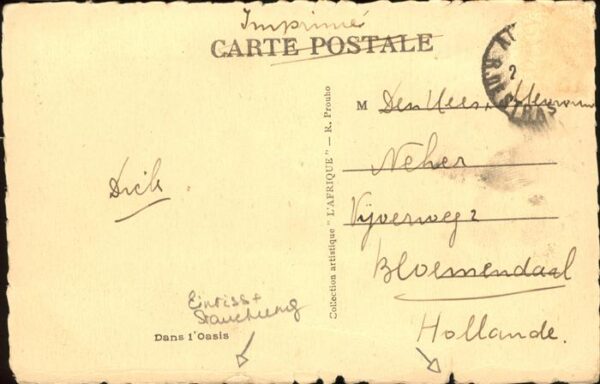 Imprimé
CARTE POSTALE
M Den Heer
Neher
Vijverweg 2
Bloemendaal
Hollande.
Collection artistique "L'AFRIQUE" — R. Prouho
Einriss +
Stauchung
Dans l'Oasis